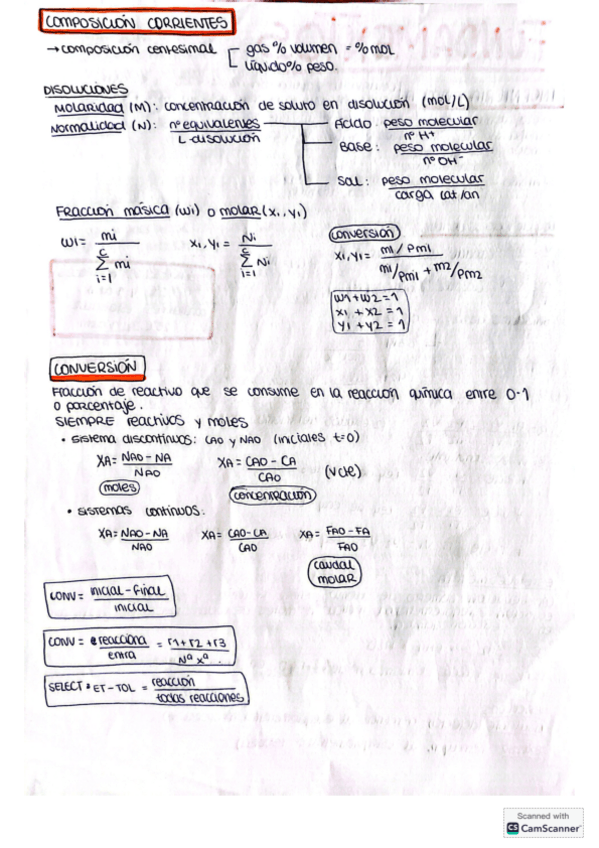 COMPOSICIÓN CORRIENTES
→ composición centesimal [ gas % volumen = % mol
líquido % peso.
DISOLUCIONES
Molaridad (M): concentración de soluto en disolución (mol/L)
Normalidad (N): nº equivalentes / L disolución
Ácido: peso molecular / nº H+
Base: peso molecular / nº OH-
Sal: peso molecular / carga cat/an
Fracción másica (wi) o molar (xi, yi)
wi = mi / Σ mi (i=1, c)
xi, yi = Ni / Σ Ni (i=1, c)
conversión
xi, yi = m1/Pm1 / m1/Pm1 + m2/Pm2
w1 + w2 = 1
x1 + x2 = 1
y1 + y2 = 1
CONVERSIÓN
Fracción de reactivo que se consume en la reacción química entre 0-1
o porcentaje.
SIEMPRE reactivos y moles
• Sistema discontinuos: CAO y NAO (iniciales t=0)
XA = NAO - NA / NAO
XA = CAO - CA / CAO
(V cte)
moles
concentración
• Sistemas continuos:
XA = NAO - NA / NAO
XA = CAO - CA / CAO
XA = FAO - FA / FAO
caudal
molar
CONV = inicial - final / inicial
CONV = reacciona / entra = r1 + r2 + r3 / Nª xª
SELECT ET-TOL = reacción / todas reacciones
Scanned with
CS CamScanner